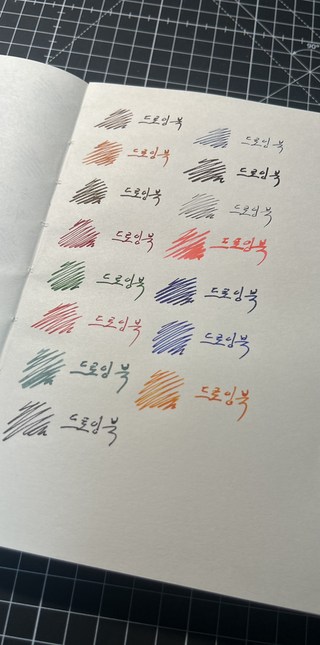 90°
드로잉북
드로잉북
드로잉북
드로잉북
드로잉북
드로잉북
드로잉북
드로잉북
드로잉북
드로잉북
드로잉북
드로잉북
드로잉북
드로잉북
드로잉북